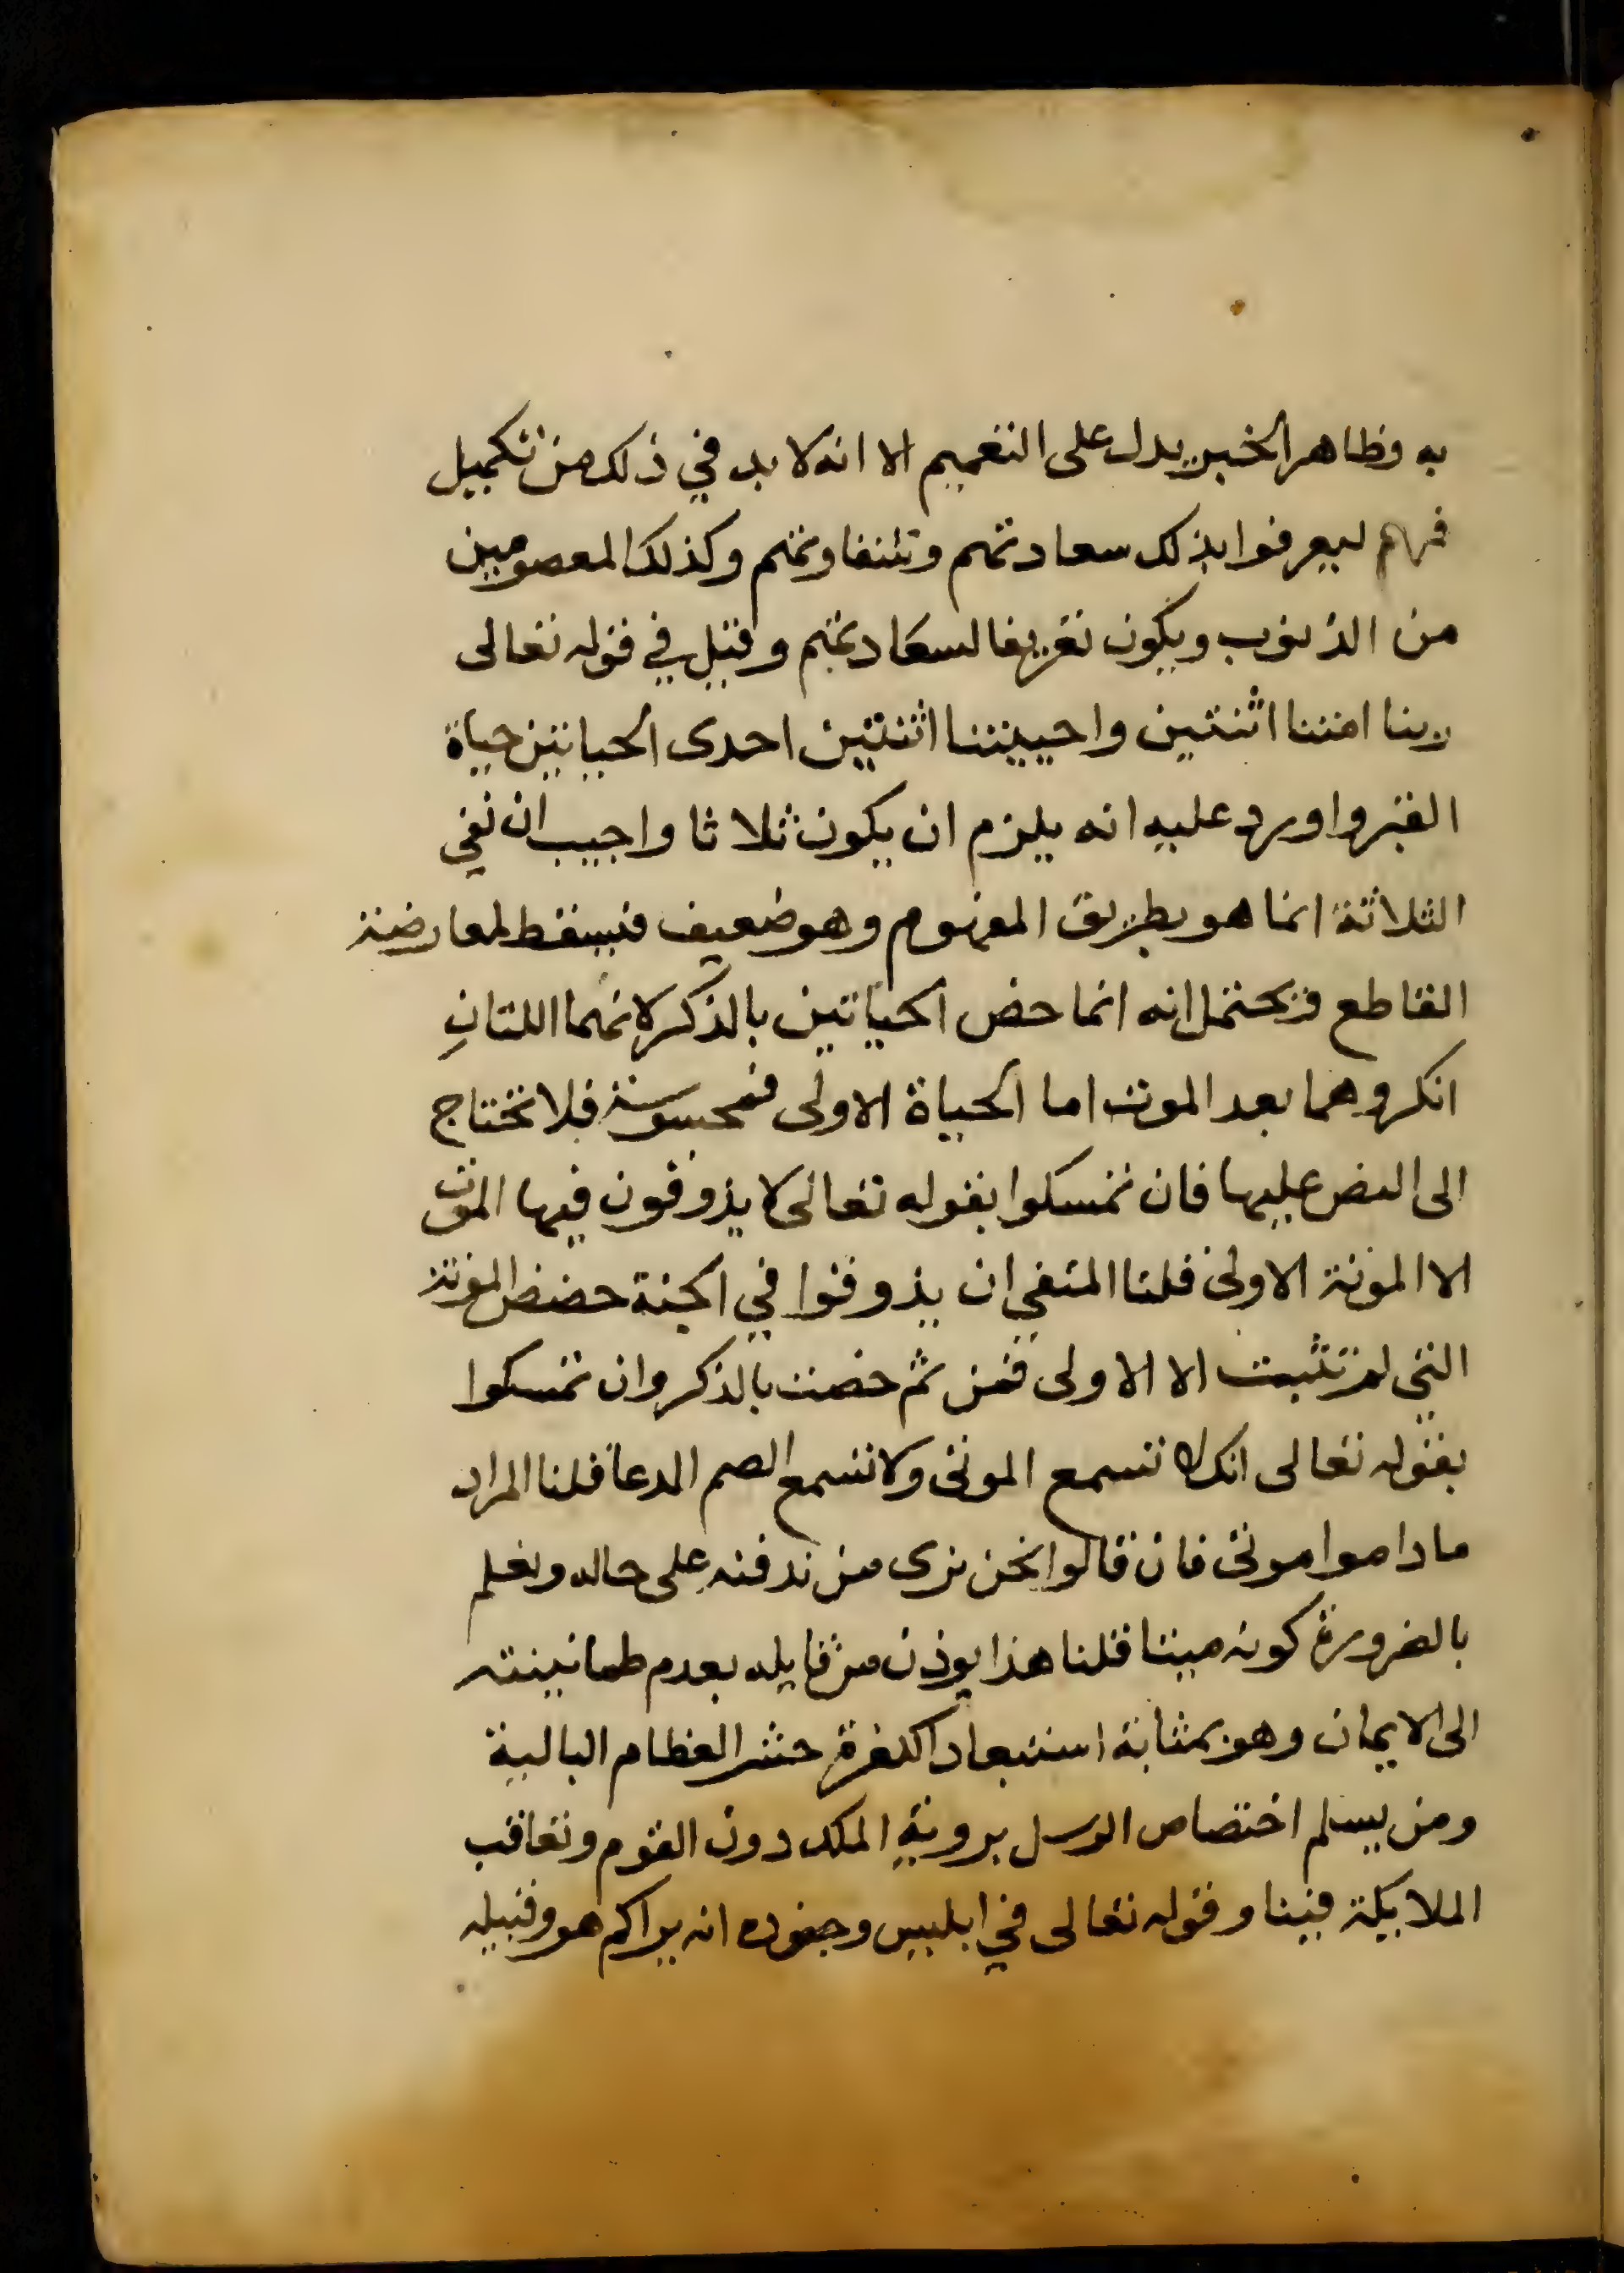 به وظاهر الخبر يدل على التعميم الا انه لا بد في ذلك من تكميل
فهم ليعرفوا بذلك سعادتهم وشقاوتهم وكذلك المعصومين
من الذنوب ويكون تعريفا لسعادتهم وقيل في قوله تعالى
ربنا امتنا اثنتين واحييتنا اثنتين احدى الحياتين حياة
القبر واورد عليه انه يلزم ان يكون ثلاثا واجيب ان نفي
الثلاثة انما هو بطريق المفهوم وهو ضعيف فيسقط لمعارضة
القاطع ويحتمل انه انما خص الحياتين بالذكر لانهما اللتان
انكروهما بعد الموت اما الحياة الاولى فمحسوسة فلا تحتاج
الى النص عليها فان تمسكوا بقوله تعالى لا يذوقون فيها الموت
الا الموتة الاولى قلنا المنفي ان يذوقوا في الجنة غصص الموتة
التي لم تثبت الا الاولى فمن ثم خصت بالذكر وان تمسكوا
بقوله تعالى انك لا تسمع الموتى ولا تسمع الصم الدعا قلنا المراد
ما داموا موتى فان قالوا نحن نرى من ندفنه على حاله ونعلم
بالضرورة كونه ميتا قلنا هذا يوذن من قايله بعدم طمانينته
الى الايمان وهو بمثابة استبعاد الكفرة حشر العظام البالية
ومن يسلم اختصاص الرسل بروية الملك دون القوم وتعاقب
الملايكة فينا وقوله تعالى في ابليس وجنوده انه يراكم هو وقبيله